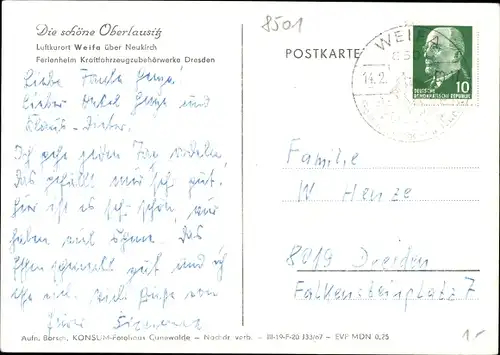 8501
Die schöne Oberlausitz
Luftkurort Weifa über Neukirch
Ferienheim Kraftfahrzeugzubehörwerke Dresden
POSTKARTE
WEIFA
8501
14.2.
DEUTSCHE
DEMOKRATISCHE REPUBLIK
10
Liebe Tante
Lieber Onkel und
Klaus-Dieter.
Ich gehe jeden Tag rodeln,
das gefällt mir sehr gut.
Hier ist es sehr schön, wir
haben viel Schnee. Das
Essen schmeckt gut und ich
esse viel. Viele Grüße von
Familie
W Henze
8019 Dresden
Falkensteinplatz 7
Aufn. Borsch, KONSUM-Fotohaus Cunewalde – Nachdr. verb. – III-19-F-20 133/67 – EVP MDN 0,25
1.-